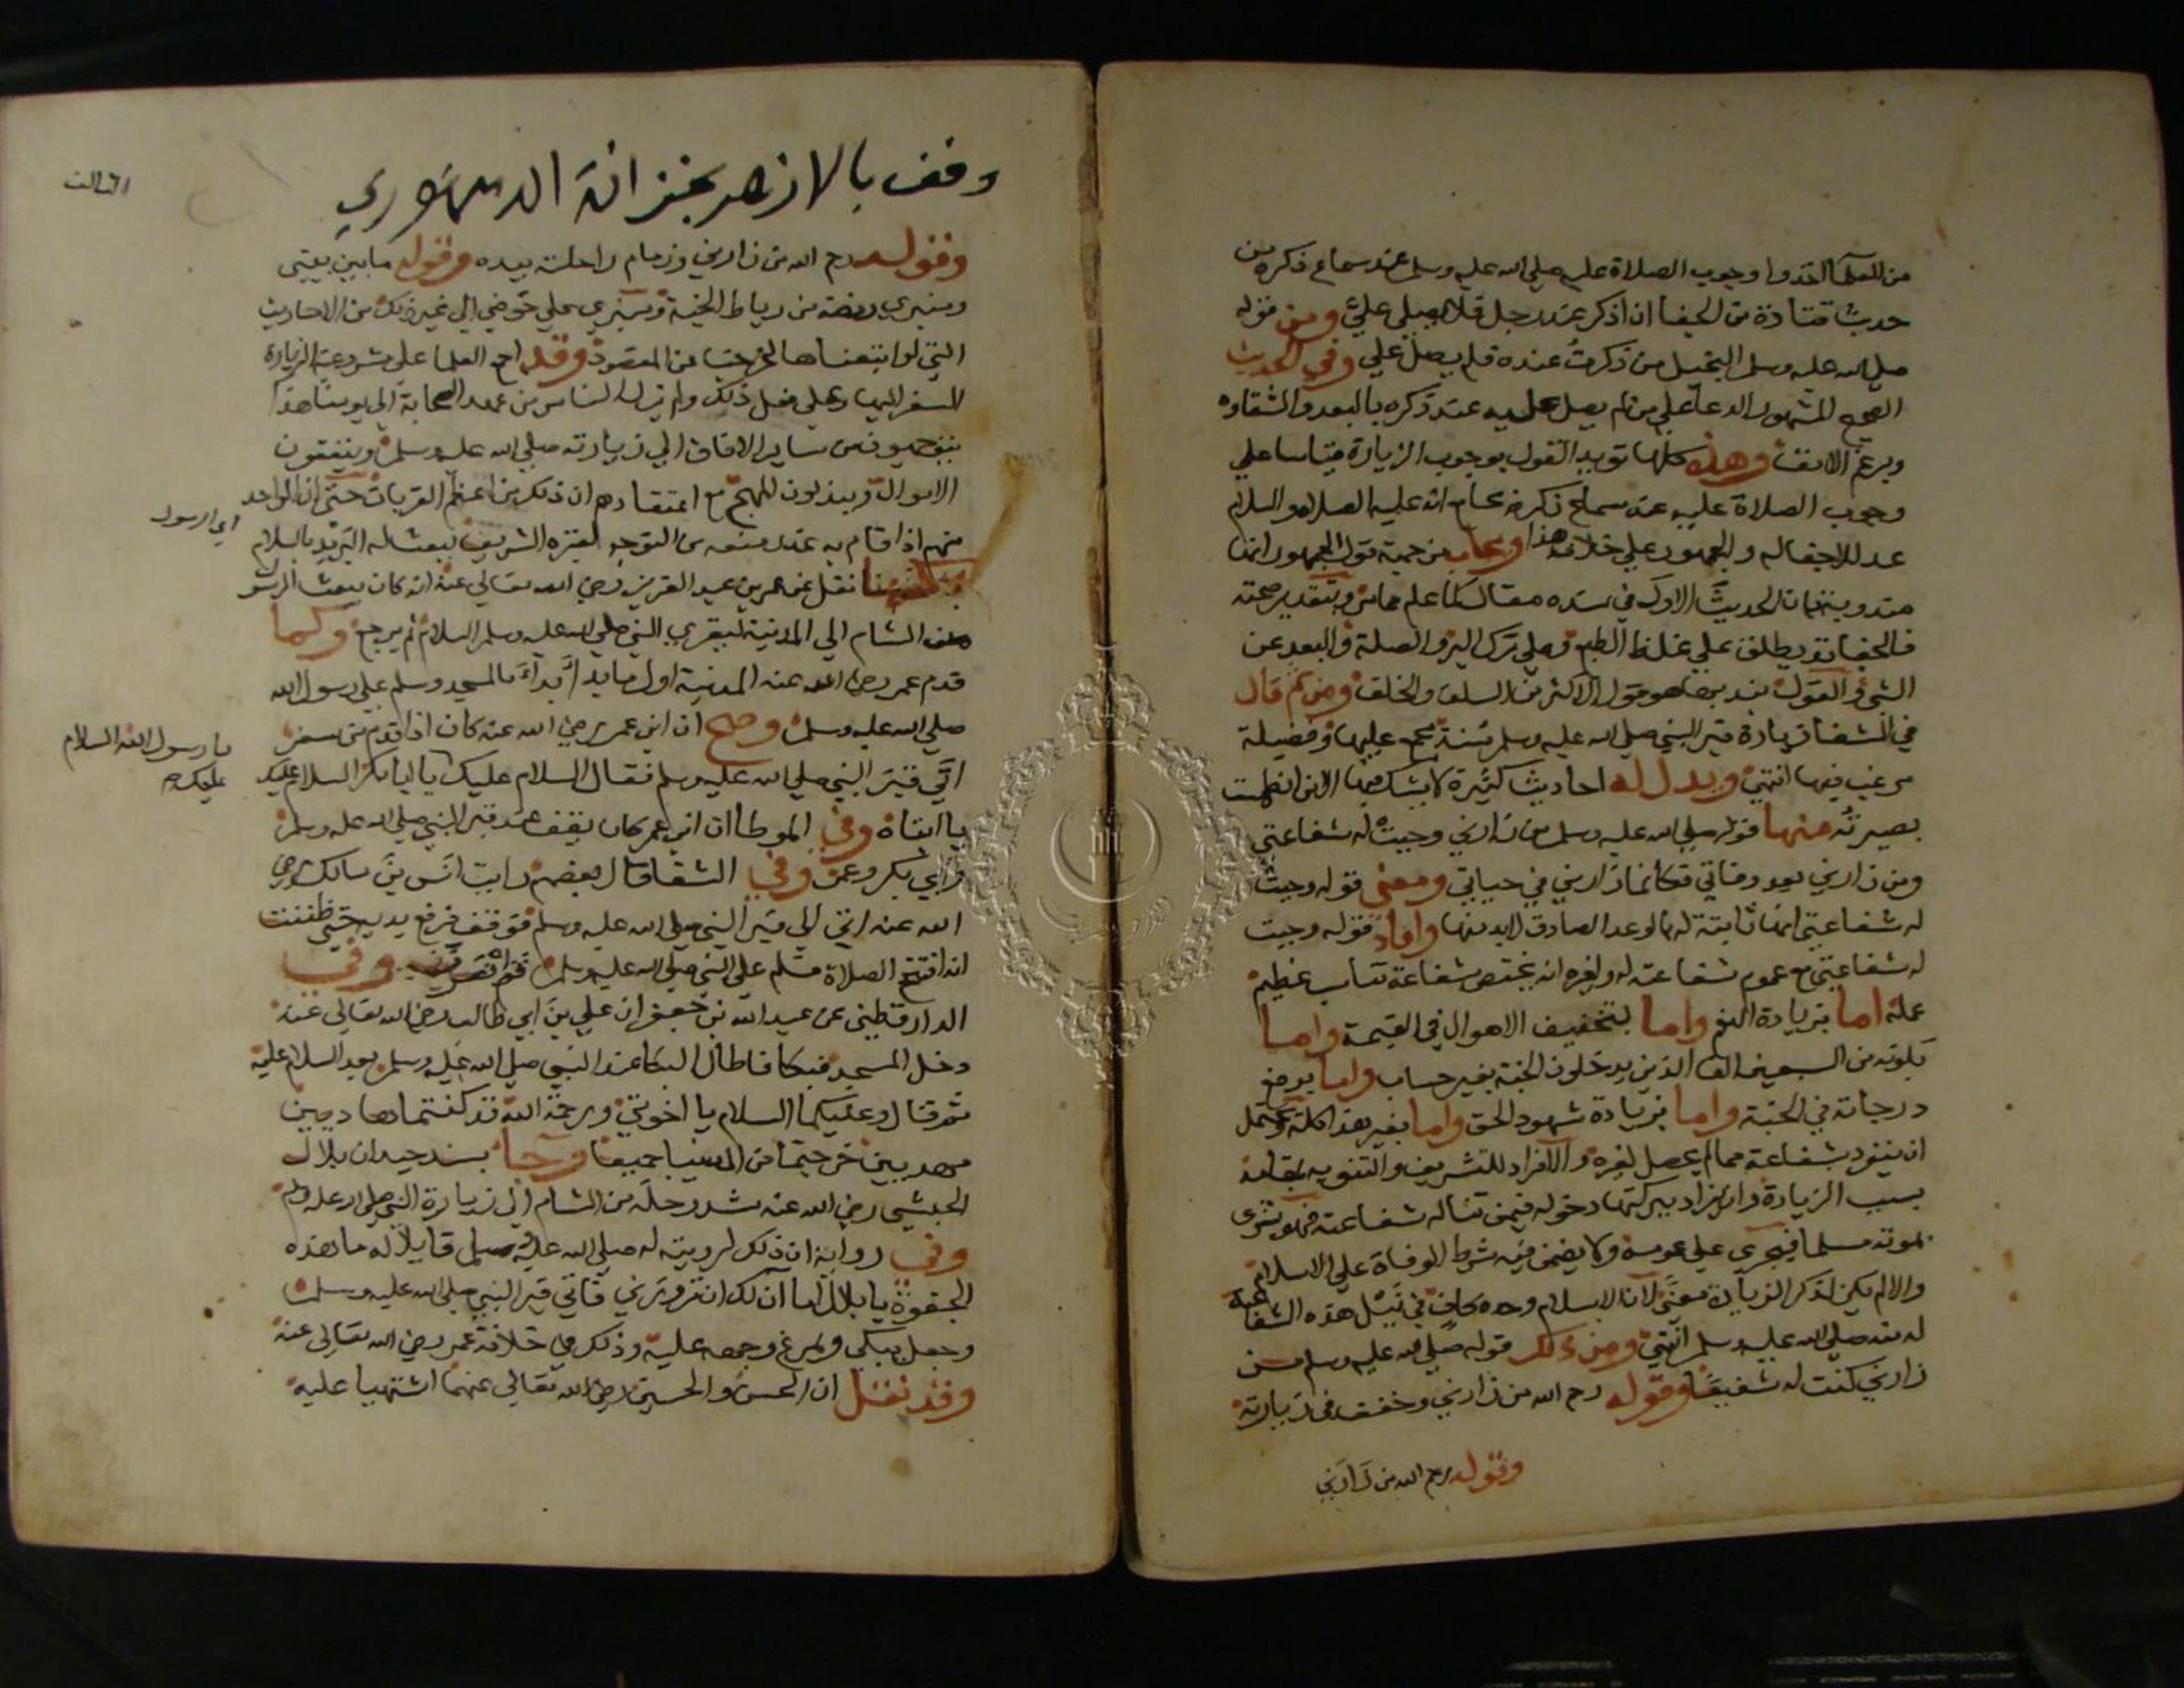 من العلما اخذوا وجوب الصلاة عليه صلي الله عليه وسلم عند سماع ذكره من
حديث قتادة من الجفا ان اذكر عند رجل فلا يصلي علي ومن قوله
صلي الله عليه وسلم البخيل من ذكرت عنده فلم يصل علي وفي الحديث
الصحيح المشهور الدعا علي من لم يصل عليه عند ذكره بالبعد والشقاوه
وبرغم الانف وهذه كلها تويد القول بوجوب الزيارة قياسا علي
وجوب الصلاة عليه عند سماع ذكره بجامع انه عليه الصلاة والسلام
والجمهور علي خلاف هذا ويجاب من جهة قول الجمهور انها
مندوبة بان الحديث الاول في سنده مقال كما علم مما مر وبتقدير صحته
فالجفا قد يطلق علي غلظ الطبع وعلي ترك البر والصلة والبعد عن
الشي والقول بندبها هو قول الاكثر من السلف والخلف ومن ثم قال
في الشفا زيارة قبر النبي صلي الله عليه وسلم سنة مجمع عليها وفضيلة
مرغب فيها انتهي ويدل له احاديث كثيرة لا يشك فيها الا من انطمست
بصيرته منها قوله صلي الله عليه وسلم من زارني وجبت له شفاعتي
ومن زارني بعد وفاتي فكانما زارني في حياتي ومعني قوله وجبت
له شفاعتي انها ثابتة له بالوعد الصادق لابد منها وافاد قوله وجبت
له شفاعتي مع عموم شفاعته له ولغيره انه يختص بشفاعة تناسب عظيم
عمله اما بزيادة النعم واما بتخفيف الاهوال في القيمة واما
بكونه من السبعين الفا الذين يدخلون الجنة بغير حساب واما برفع
درجاته في الجنة واما بزيادة شهود الحق واما بغير هذا كله ويحتمل
ان ينفرد بشفاعة مما لم يحصل لغيره والافراد للتشريف والتنويه
بسبب الزيارة وان يراد ببركتها دخوله فيمن تناله شفاعته فهو بشري
بموته مسلما فيجري علي عمومه ولا يضمن فيه شرط الوفاة علي الاسلام
والا لم يكن لذكر الزيارة معني لان الاسلام وحده كاف في نيل هذه الشفاعة
له منه صلي الله عليه وسلم انتهي ومن ذلك قوله صلي الله عليه وسلم من
زارني كنت له شفيعا وقوله رحم الله من زارني وخفف في زيارته
وقوله رحم الله من زارني
الثالث
وقف بالازهر بخزانة الدمنهوري
وقوله رحم الله من زارني وزمام راحلته بيده وقوله ما بين بيتي
ومنبري روضة من رياض الجنة ومنبري علي حوضي الي غير ذلك من الاحاديث
التي لو اتبعناها لخرجنا عن المقصود وقد اجمع العلما علي مشروعية الزيارة
السفر اليها وعلي فعل ذلك ولم يزل الناس من عهد الصحابة الي يومنا هذا
يتوجهون من ساير الافاق الي زيارته صلي الله عليه وسلم وينفقون
الاموال ويبذلون المهج مع اعتقادهم ان ذلك من اعظم القربات حتي ان الواحد
منهم اذا قام به عذر منعه من التوجه لقبره الشريف يبعث له البريد بالسلام
اي الرسول
نقل عن عمر بن عبد العزيز رضي الله تعالي عنه انه كان يبعث الرسول
من الشام الي المدينة ليقري النبي صلي الله عليه وسلم السلام ثم يرجع ولما
قدم عمر رضي الله عنه المدينة اول ما بدا بالمسجد وسلم علي رسول الله
صلي الله عليه وسلم وصح ان ابن عمر رضي الله عنه كان اذا قدم من سفر
اتي قبر النبي صلي الله عليه وسلم فقال السلام عليك يا ابا بكر السلام عليك
يا رسول الله السلام
عليك صح
يا ابتاه وفي الموطا ان ابن عمر كان يقف عند قبر النبي صلي الله عليه وسلم
وابي بكر وعمر وفي الشفا قال بعضهم رايت انس بن مالك رضي
الله عنه اتي الي قبر النبي صلي الله عليه وسلم فوقف فرفع يديه حتي ظننت
انه افتتح الصلاة فسلم علي النبي صلي الله عليه وسلم ثم انصرف وفي
الدارقطني عن عبد الله بن جعفر ان علي بن ابي طالب رضي الله تعالي عنه
دخل المسجد فبكا فاطال البكا عند النبي صلي الله عليه وسلم بعد السلام عليه
ثم قال وعليكما السلام يا اخوتي ورحمة الله قد كنتما هاديين
مهديين خرجتما من الدنيا جميعا وجا بسند جيد ان بلال
الحبشي رضي الله عنه شد رحله من الشام الي زيارة النبي صلي الله عليه وسلم
وفي رواية ان ذلك لرويته له صلي الله عليه وسلم قايلا له ما هذه
الجفوة يا بلال اما آن لك ان تزورني فاتي قبر النبي صلي الله عليه وسلم
وجعل يبكي ويمرغ وجهه عليه وذلك في خلافة عمر رضي الله تعالي عنه
وقد نقل ان الحسن والحسين رضي الله تعالي عنهما اشتهيا عليه